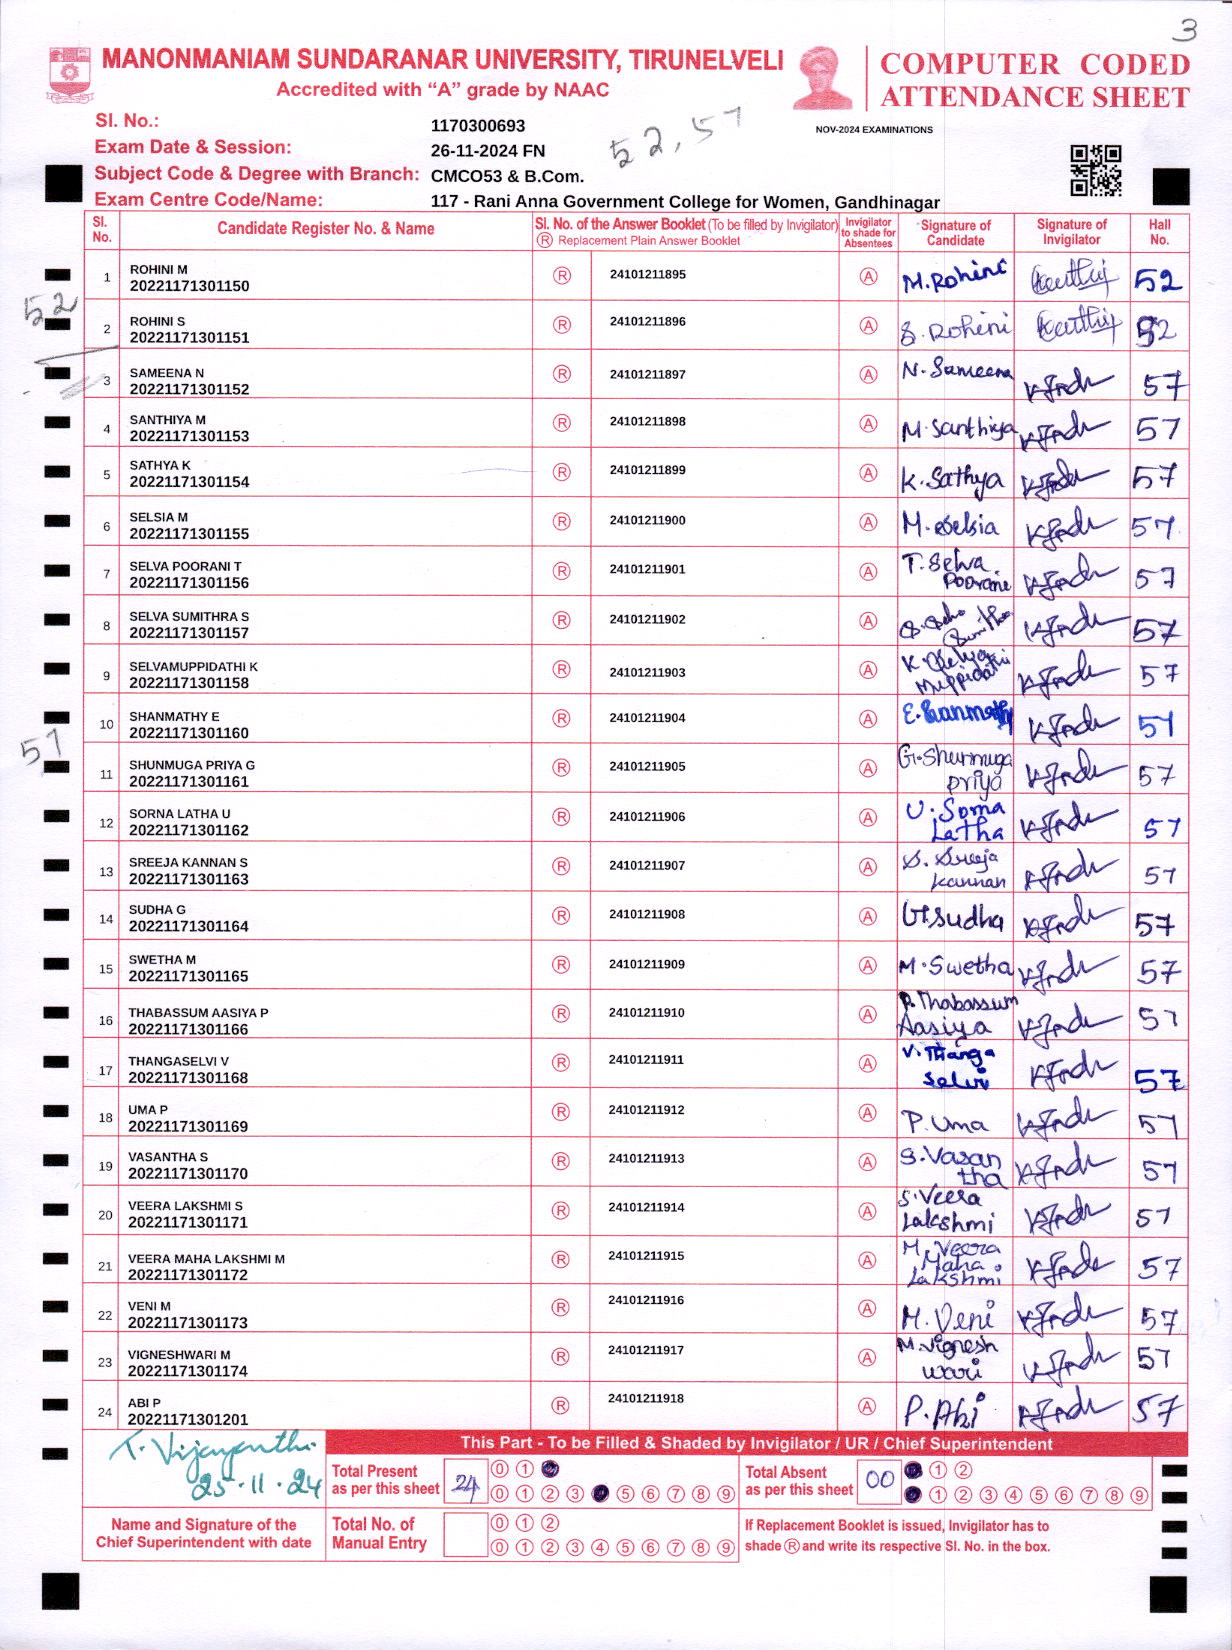 3
MANONMANIAM SUNDARANAR UNIVERSITY, TIRUNELVELI
Accredited with “A” grade by NAAC
COMPUTER CODED
ATTENDANCE SHEET
NOV-2024 EXAMINATIONS
Sl. No.: 1170300693
Exam Date & Session: 26-11-2024 FN
52, 57
Subject Code & Degree with Branch: CMCO53 & B.Com.
Exam Centre Code/Name: 117 - Rani Anna Government College for Women, Gandhinagar
Sl. No. Candidate Register No. & Name Sl. No. of the Answer Booklet (To be filled by Invigilator) Ⓡ Replacement Plain Answer Booklet Invigilator to shade for Absentees Signature of Candidate Signature of Invigilator Hall No.
1 ROHINI M 20221171301150 Ⓡ 24101211895 Ⓐ M.Rohini 52
52
2 ROHINI S 20221171301151 Ⓡ 24101211896 Ⓐ S.Rohini 52
3 SAMEENA N 20221171301152 Ⓡ 24101211897 Ⓐ N.Sameena 57
4 SANTHIYA M 20221171301153 Ⓡ 24101211898 Ⓐ M.Santhiya 57
5 SATHYA K 20221171301154 Ⓡ 24101211899 Ⓐ K.Sathya 57
6 SELSIA M 20221171301155 Ⓡ 24101211900 Ⓐ M.Selsia 57
7 SELVA POORANI T 20221171301156 Ⓡ 24101211901 Ⓐ T.Selva Poorani 57
8 SELVA SUMITHRA S 20221171301157 Ⓡ 24101211902 Ⓐ 57
9 SELVAMUPPIDATHI K 20221171301158 Ⓡ 24101211903 Ⓐ K.Selva Muppidathi 57
10 SHANMATHY E 20221171301160 Ⓡ 24101211904 Ⓐ E.Shanmathy 57
57
11 SHUNMUGA PRIYA G 20221171301161 Ⓡ 24101211905 Ⓐ G.Shunmuga priya 57
12 SORNA LATHA U 20221171301162 Ⓡ 24101211906 Ⓐ U.Sorna Latha 57
13 SREEJA KANNAN S 20221171301163 Ⓡ 24101211907 Ⓐ S.Sreeja kannan 57
14 SUDHA G 20221171301164 Ⓡ 24101211908 Ⓐ G.Sudha 57
15 SWETHA M 20221171301165 Ⓡ 24101211909 Ⓐ M.Swetha 57
16 THABASSUM AASIYA P 20221171301166 Ⓡ 24101211910 Ⓐ P.Thabassum Aasiya 57
17 THANGASELVI V 20221171301168 Ⓡ 24101211911 Ⓐ V.Thanga Selvi 57
18 UMA P 20221171301169 Ⓡ 24101211912 Ⓐ P.Uma 57
19 VASANTHA S 20221171301170 Ⓡ 24101211913 Ⓐ S.Vasan tha 57
20 VEERA LAKSHMI S 20221171301171 Ⓡ 24101211914 Ⓐ S.Veera Lakshmi 57
21 VEERA MAHA LAKSHMI M 20221171301172 Ⓡ 24101211915 Ⓐ M.Veera Maha Lakshmi 57
22 VENI M 20221171301173 Ⓡ 24101211916 Ⓐ M.Veni 57
23 VIGNESHWARI M 20221171301174 Ⓡ 24101211917 Ⓐ M.Vignesh wari 57
24 ABI P 20221171301201 Ⓡ 24101211918 Ⓐ P.Abi 57
T. Vijayanthi
25.11.24
This Part - To be Filled & Shaded by Invigilator / UR / Chief Superintendent
Total Present as per this sheet 24 0 1 0 1 2 3 5 6 7 8 9
Total Absent as per this sheet 00 1 2 1 2 3 4 5 6 7 8 9
Name and Signature of the Chief Superintendent with date
Total No. of Manual Entry 0 1 2 0 1 2 3 4 5 6 7 8 9
If Replacement Booklet is issued, Invigilator has to
shade Ⓡ and write its respective Sl. No. in the box.